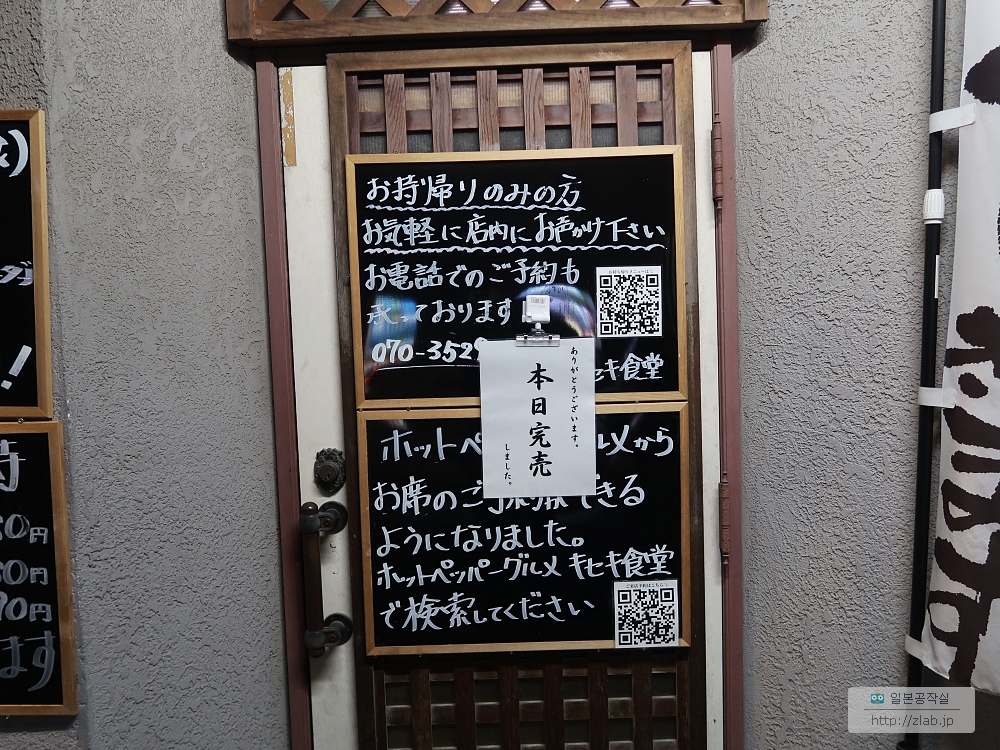 お持帰りのみの方
お気軽に店内にお声がけ下さい
お電話でのご予約も
承っております
070-3529
キセキ食堂
ありがとうございます。
本日完売
しました。
ホットペ
ルメから
お席のご予約できる
ようになりました。
ホットペッパーグルメ キセキ食堂
で検索してください
円
円
円
ます
일본공작실
http://zlab.jp